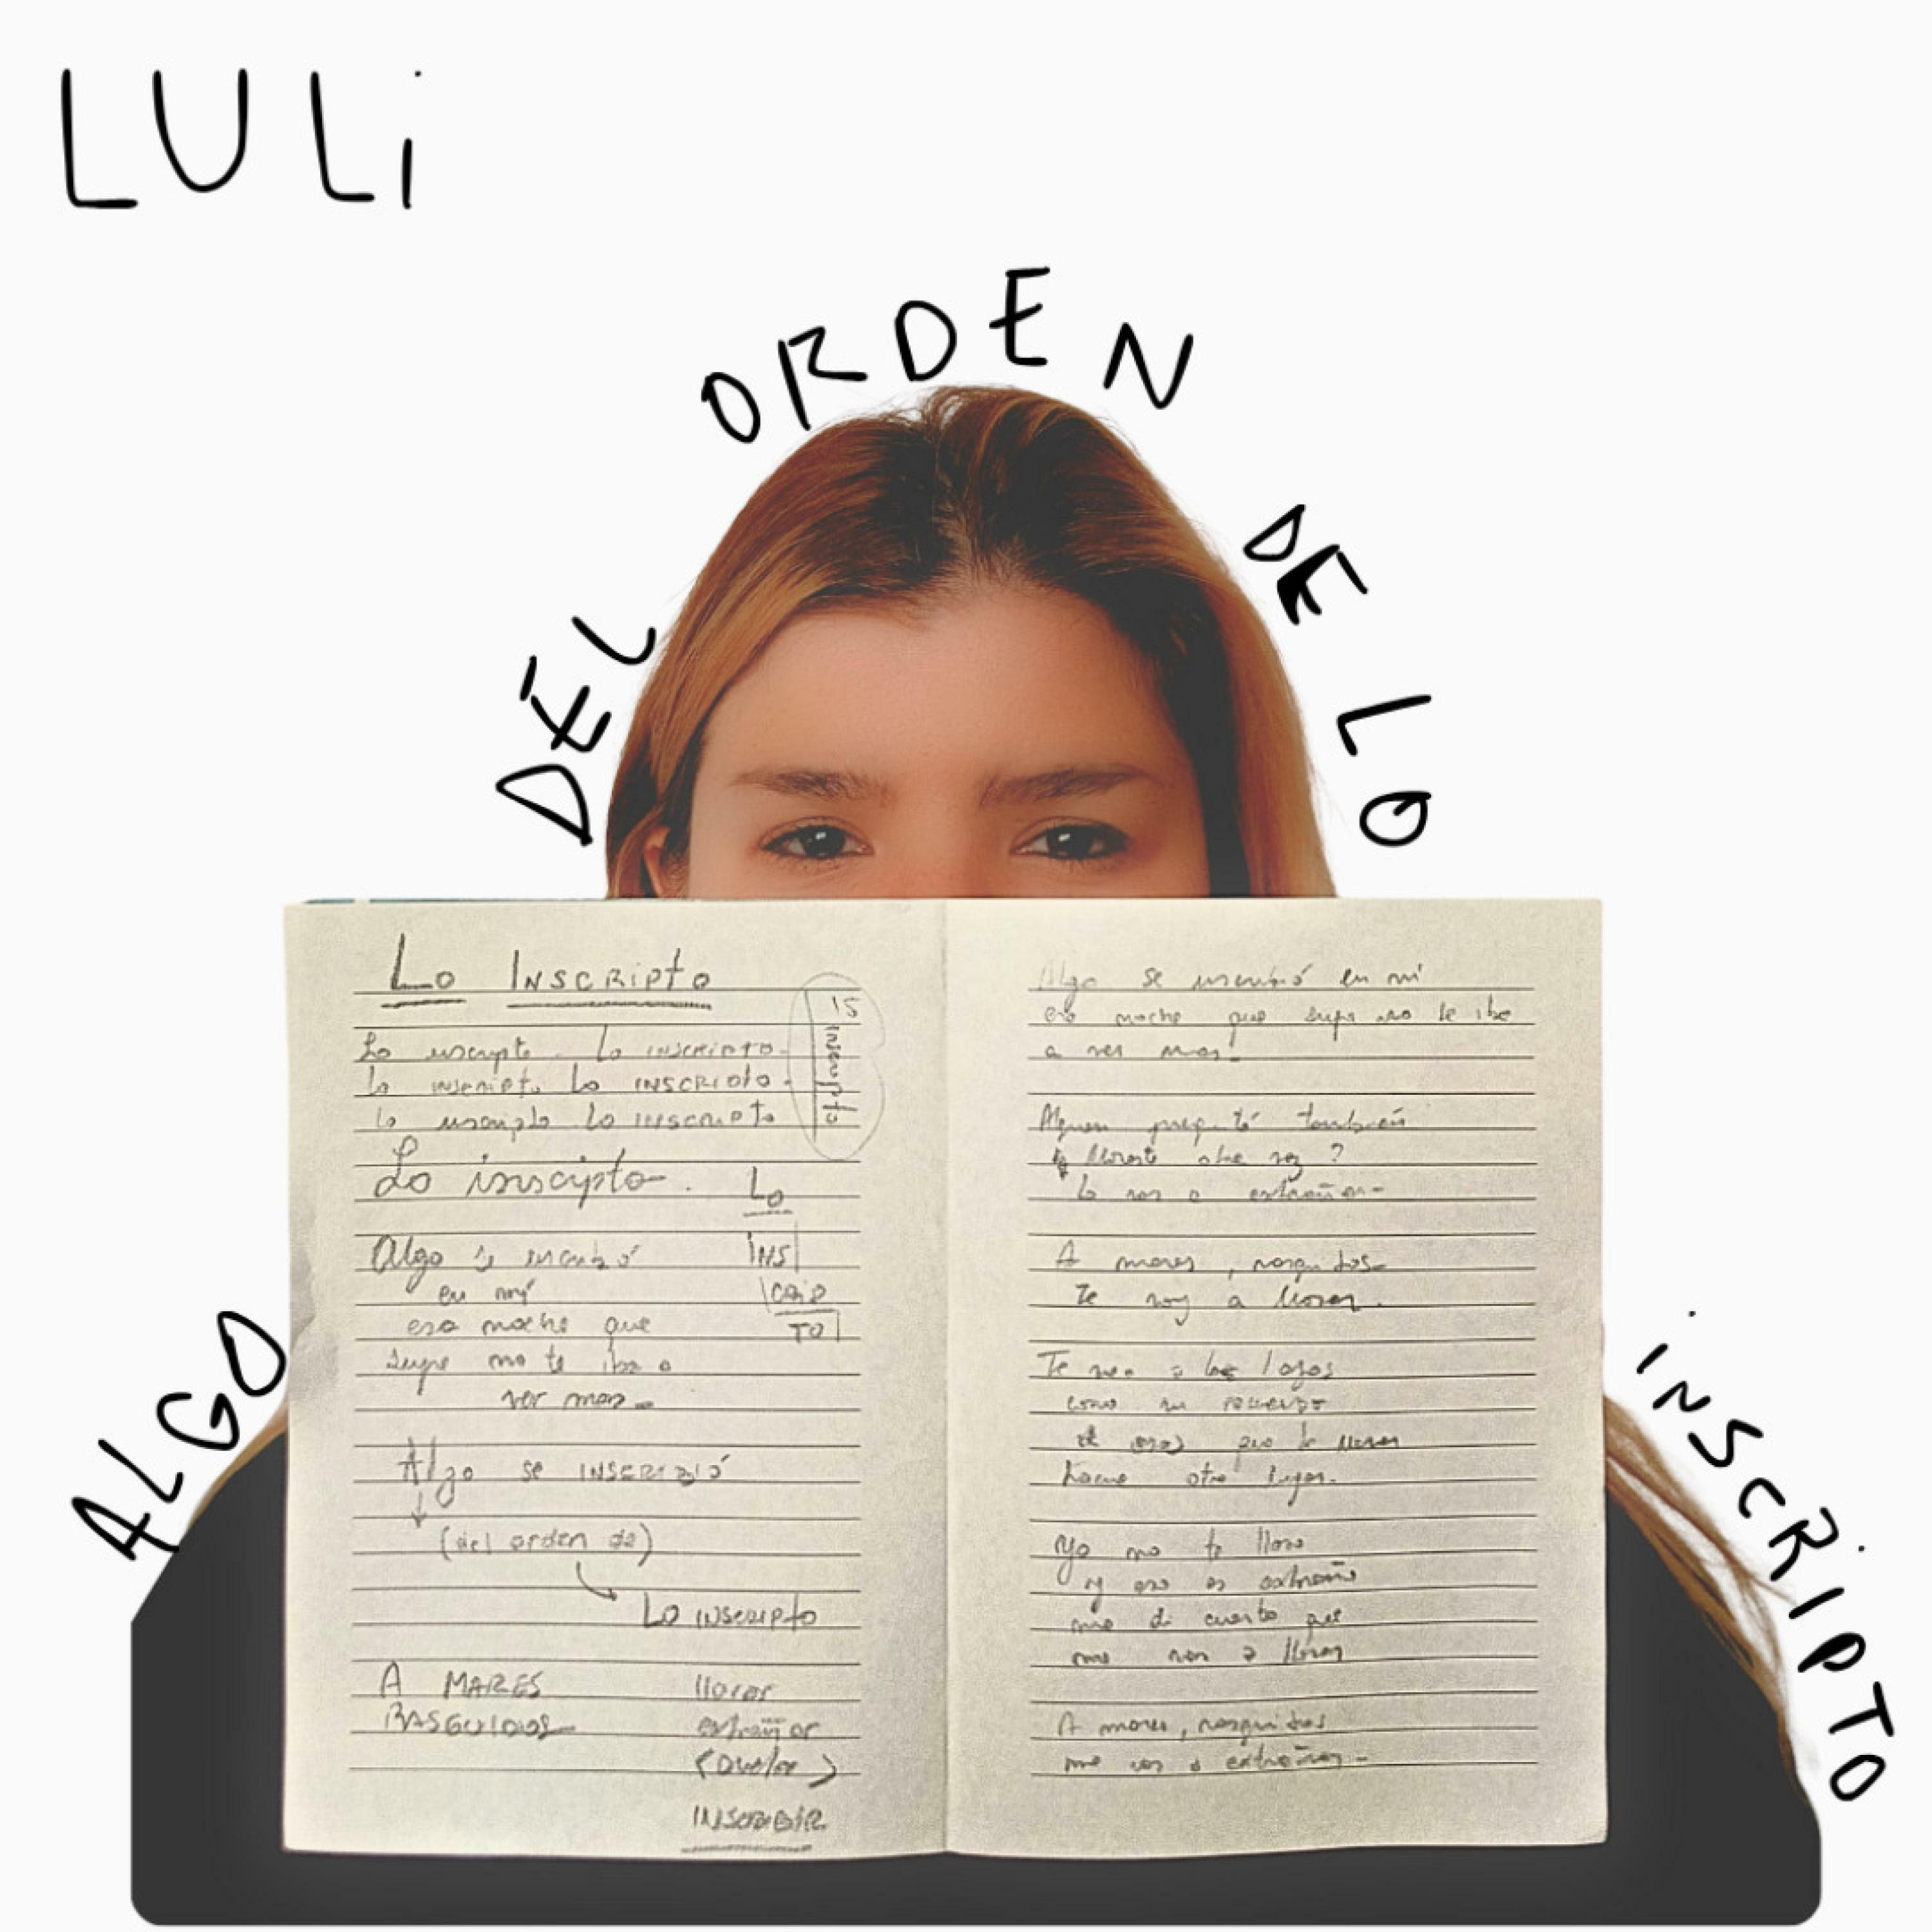 LULi
ALGO DEL ORDEN DE LO iNSCRiPTO
Lo Inscripto
15
Inscripto
Lo inscripto. Lo inscripto.
lo inscripto Lo inscripto.
lo inscripto Lo inscripto
Lo inscripto.
Lo
INS
CRIP
TO
Algo se inscribió
en mí
esa noche que
supe no te iba a
ver mas
Algo se INSCRIBIÓ
(del orden de)
Lo inscripto
A MARES
RASGUIDOS
llorar
extrañar
(Duelar)
INSCRIBIR
Algo se inscribió en mí
esa noche que supe no te iba
a ver mas.
Alguien preguntó también
lloraste otra vez?
Lo vas a extrañar
A mares, rasguidos
Te voy a llorar.
Te veo a lo lejos
como un recuerdo
que te lloran
hacia otro lugar.
Yo no te lloro
y eso es extraño
me di cuenta que
me vas a llorar
A mares, rasguidos
me vas a extrañar